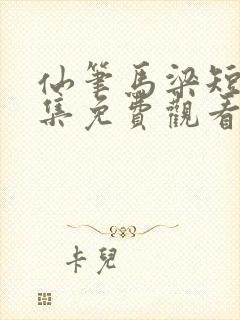 仙筆馬梁短
集免費觀看
卡兒